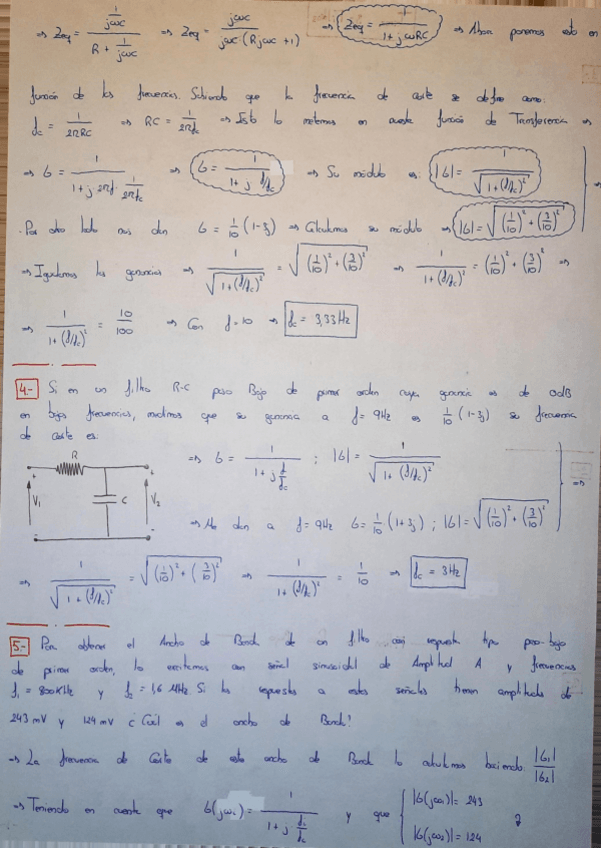 ⇒ Zeq = (1/jωC)/(R + 1/jωC) ⇒ Zeq = jωC/(jωC·(RjωC+1)) ⇒ Zeq = 1/(1+jωRC) ⇒ Ahora ponemos esto en
función de las frecuencias. Sabiendo que la frecuencia de corte se define como:
fc = 1/(2πRC) ⇒ RC = 1/(2πfc) ⇒ Esto lo metemos en nuestra función de Transferencia ⇒
⇒ G = 1/(1+j·2πf·1/(2πfc)) ⇒ G = 1/(1+j f/fc) ⇒ Su módulo es: |G| = 1/√(1+(f/fc)²) ⇒
·Por otro lado nos dan G = 1/10 (1-3j) ⇒ Calculamos su módulo ⇒ |G| = √((1/10)² + (3/10)²)
⇒ Igualamos las ganancias ⇒ 1/√(1+(f/fc)²) = √((1/10)²+(3/10)²) ⇒ 1/(1+(f/fc)²) = (1/10)² + (3/10)² ⇒
⇒ 1/(1+(f/fc)²) = 10/100 ⇒ Con f=10 ⇒ fc = 3,33Hz
4.- Si en un filtro R-C paso Bajo de primer orden cuya ganancia es de 0dB
en bajas frecuencias, medimos que su ganancia a f= 9Hz es 1/10 (1-3j) su frecuencia
de corte es:
R
+ +
V1 C V2
- -
⇒ G = 1/(1+j f/fc) ; |G| = 1/√(1+(f/fc)²) ⇒
⇒ Me dan a f= 9Hz G= 1/10 (1+3j) ; |G| = √((1/10)² + (3/10)²)
⇒ 1/√(1+(f/fc)²) = √((1/10)² + (3/10)²) ⇒ 1/(1+(f/fc)²) = 1/10 ⇒ fc = 3Hz
5.- Para obtener el Ancho de Banda de un filtro con respuesta tipo paso-bajo
de primer orden, lo excitamos con señal sinusoidal de Amplitud A y frecuencias
f1 = 800KHz y f2 = 1,6 MHz Si las respuestas a estas señales tienen amplitudes de
243 mV y 124 mV ¿Cuál es el ancho de Banda?
⇒ La frecuencia de Corte de este ancho de Banda lo calculamos haciendo: |G1|/|G2|
⇒ Teniendo en cuenta que G(jωc) = 1/(1+j f/fc) y que { |G(jω1)| = 243
|G(jω2)| = 124